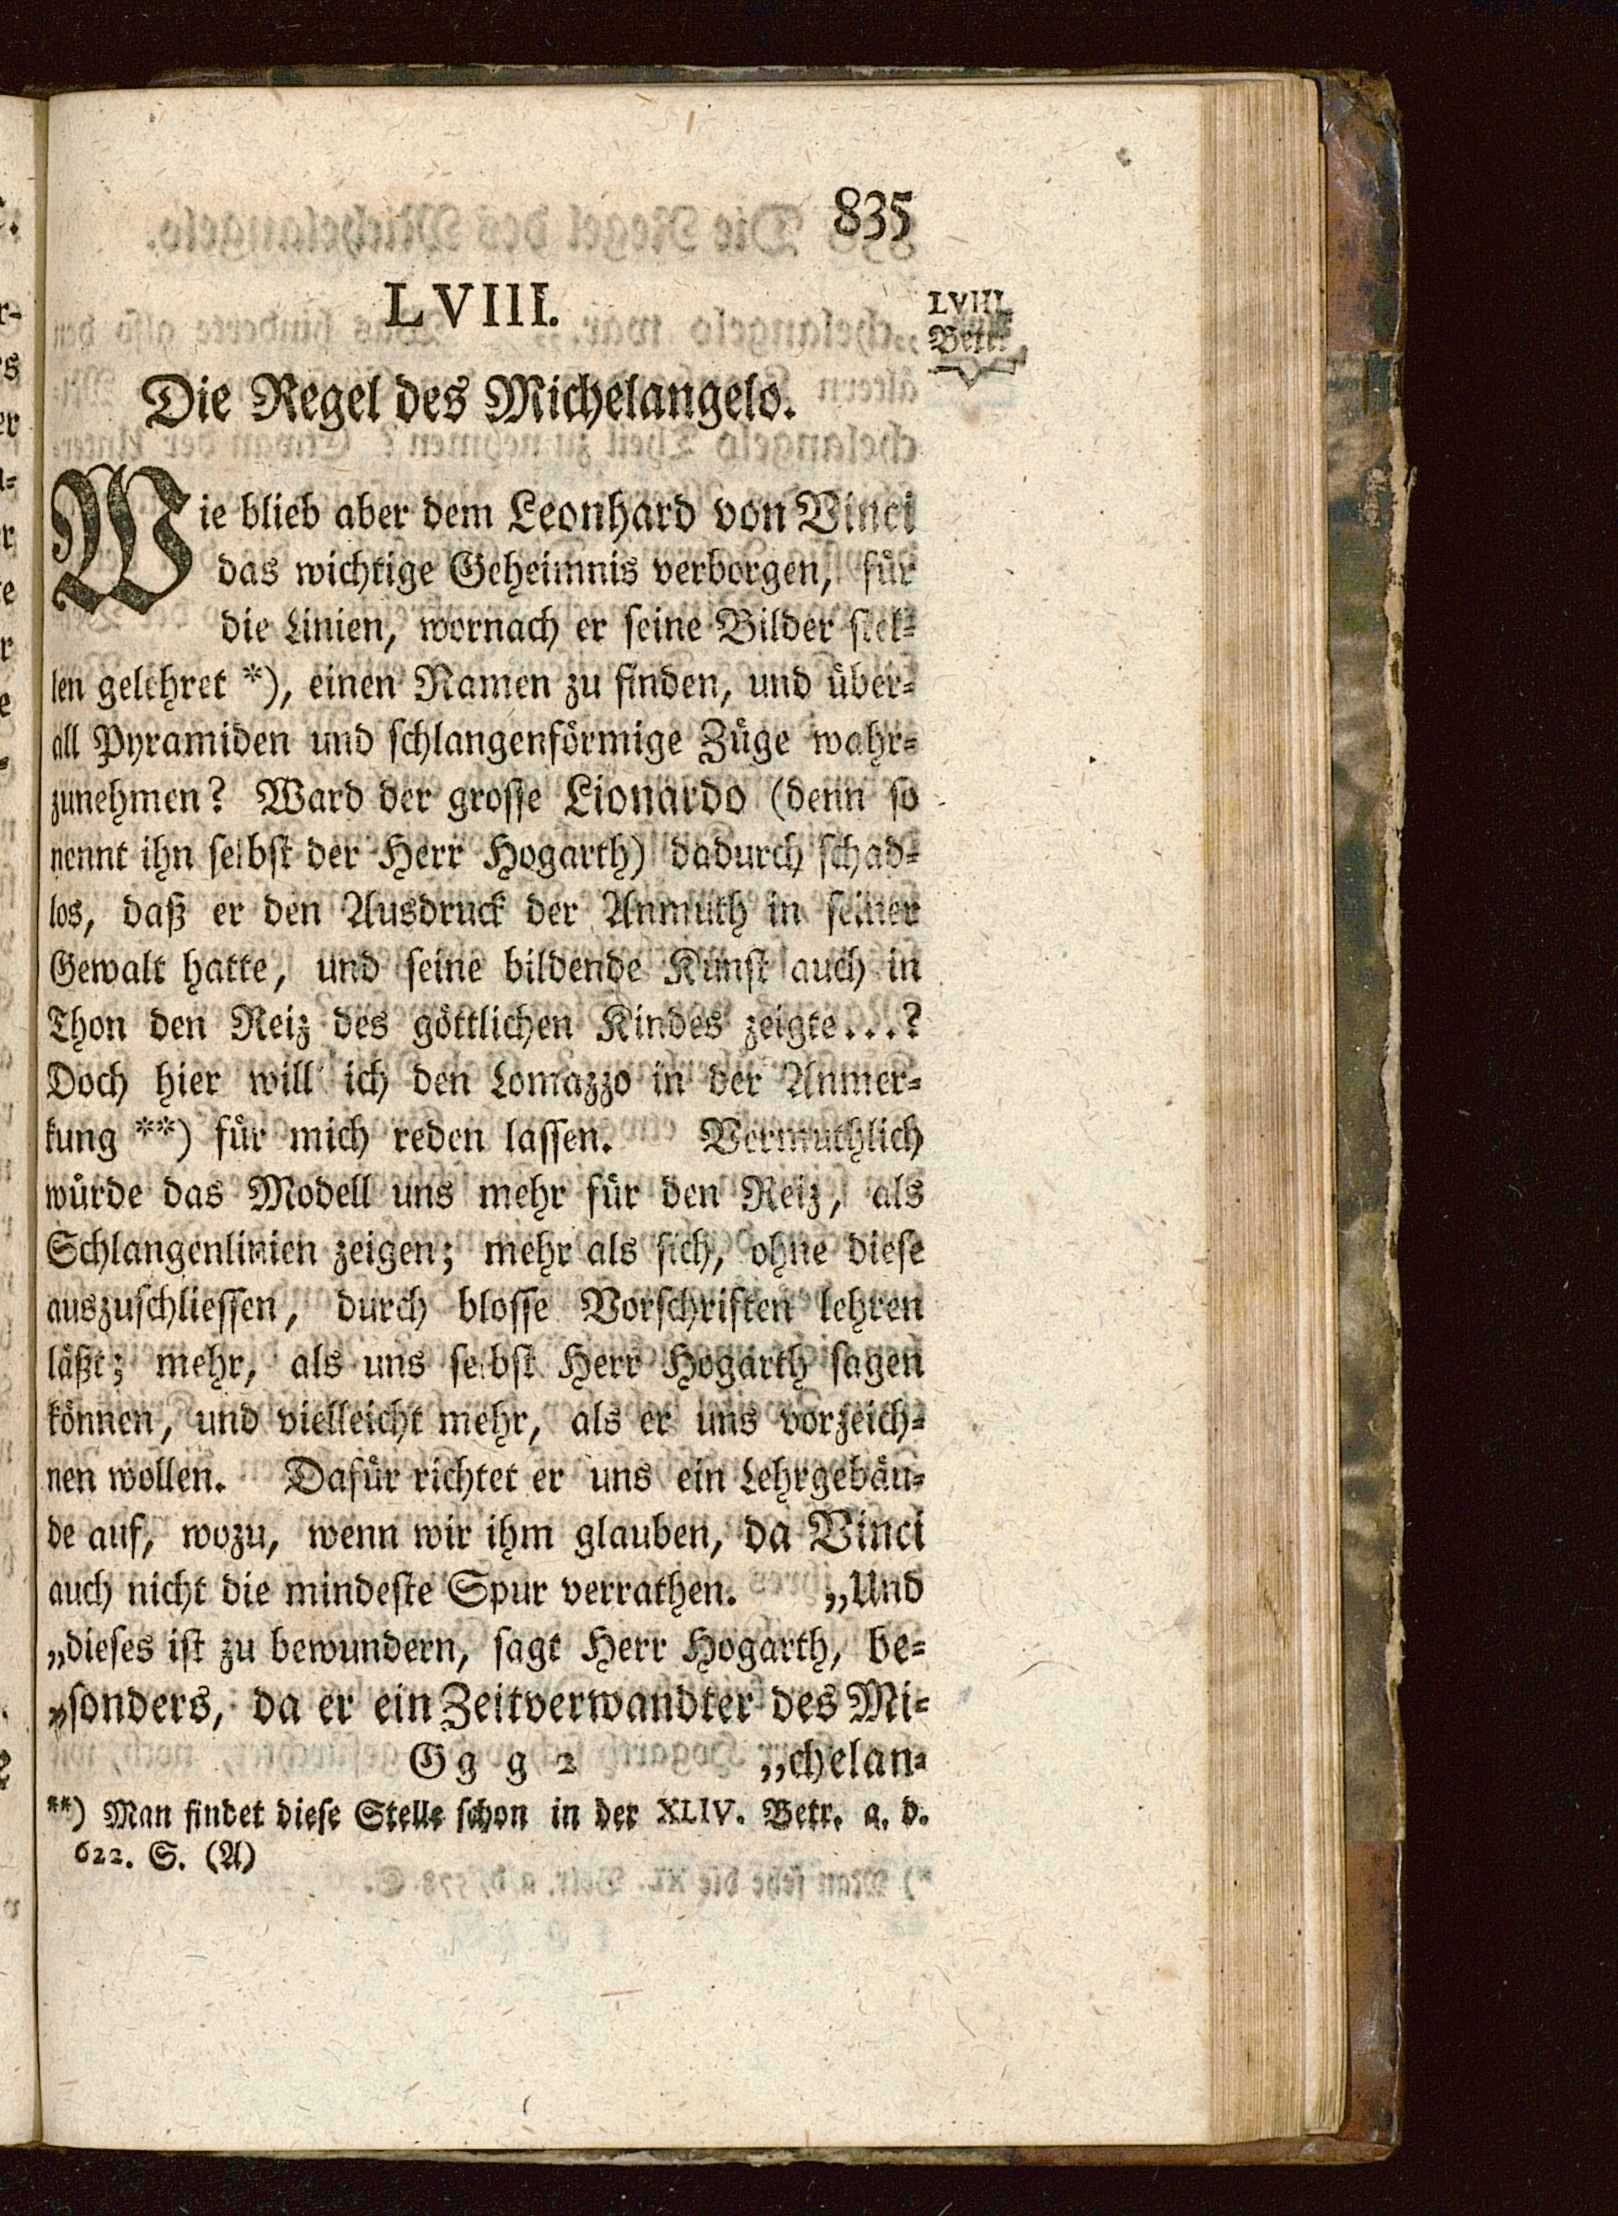 835
LVIII.
LVIII.
Betr.
Die Regel des Michelangelo.
Wie blieb aber dem Leonhard von Vinci
das wichtige Geheimnis verborgen, für
die Linien, wornach er seine Bilder stel-
len gelehret *), einen Namen zu finden, und über-
all Pyramiden und schlangenförmige Züge wahr-
zunehmen? Ward der grosse Lionardo (denn so
nennt ihn selbst der Herr Hogarth) dadurch schad-
los, daß er den Ausdruck der Anmuth in seiner
Gewalt hatte, und seine bildende Kunst auch in
Thon den Reiz des göttlichen Kindes zeigte...?
Doch hier will ich den Lomazzo in der Anmer-
kung **) für mich reden lassen. Vermuthlich
würde das Modell uns mehr für den Reiz, als
Schlangenlinien zeigen; mehr als sich, ohne diese
auszuschliessen, durch blosse Vorschriften lehren
läßt; mehr, als uns selbst Herr Hogarth sagen
können, und vielleicht mehr, als er uns vorzeich-
nen wollen. Dafür richtet er uns ein Lehrgebäu-
de auf, wozu, wenn wir ihm glauben, da Vinci
auch nicht die mindeste Spur verrathen. „Und
„dieses ist zu bewundern, sagt Herr Hogarth, be-
„sonders, da er ein Zeitverwandter des Mi-
Gg g 2 „chelan-
**) Man findet diese Stelle schon in der XLIV. Betr. a. d.
622. S. (A)